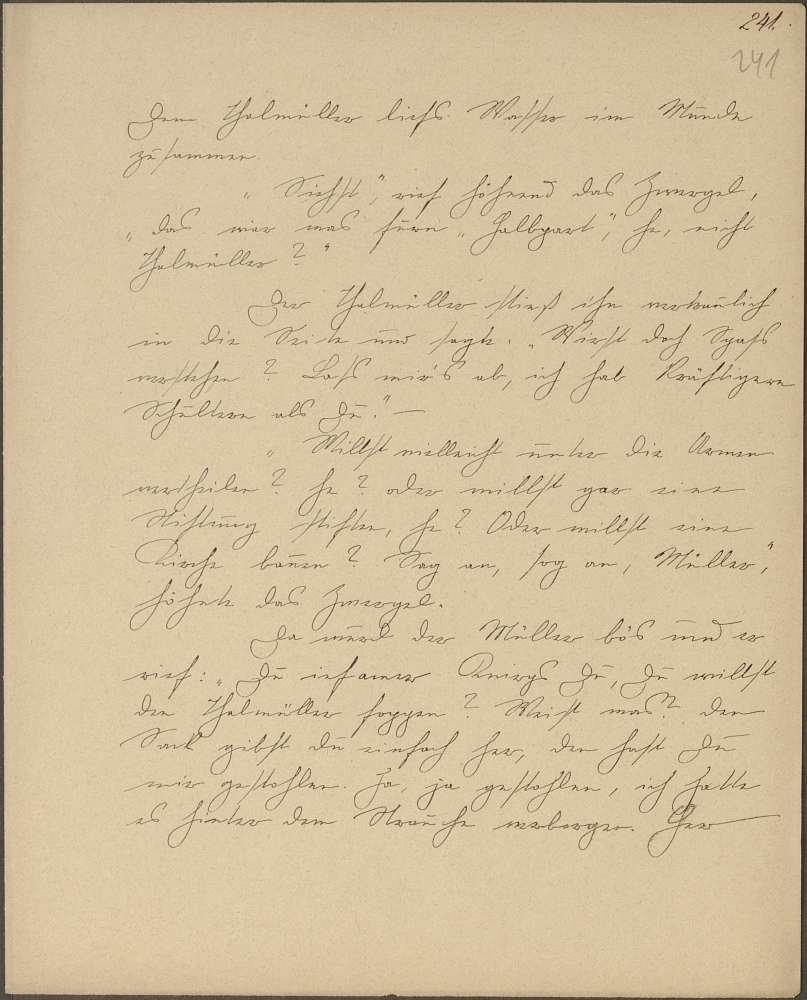 241.
241
Dem Thalmüller liefs Wasser im Munde
zusammen.
„Siehst", rief höhnend das Zwergel,
„das wär was fürn „Halbpart", he, nicht
Thalmüller?"
Der Thalmüller stieß ihn vertraulich
in die Seite und sagte: „Wirst doch Spass
verstehen? Lass mir's ab, ich hab kräftigere
Schultern als Du." —
„Willst vielleicht unter die Armen
vertheilen? he? oder willst gar eine
Stiftung stiften, he? Oder willst eine
Kirche bauen? Sag an, sag an, Müller",
höhnte das Zwergel.
Da wurd der Müller bös und er
rief: „Du infamer Knirps Du, Du willst
den Thalmüller foppen? Weist was? den
Sack gibst du einfach her, den hast Du
mir gestohlen. Ja, ja gestohlen, ich hatte
es hinter dem Strauche verborgen. Her